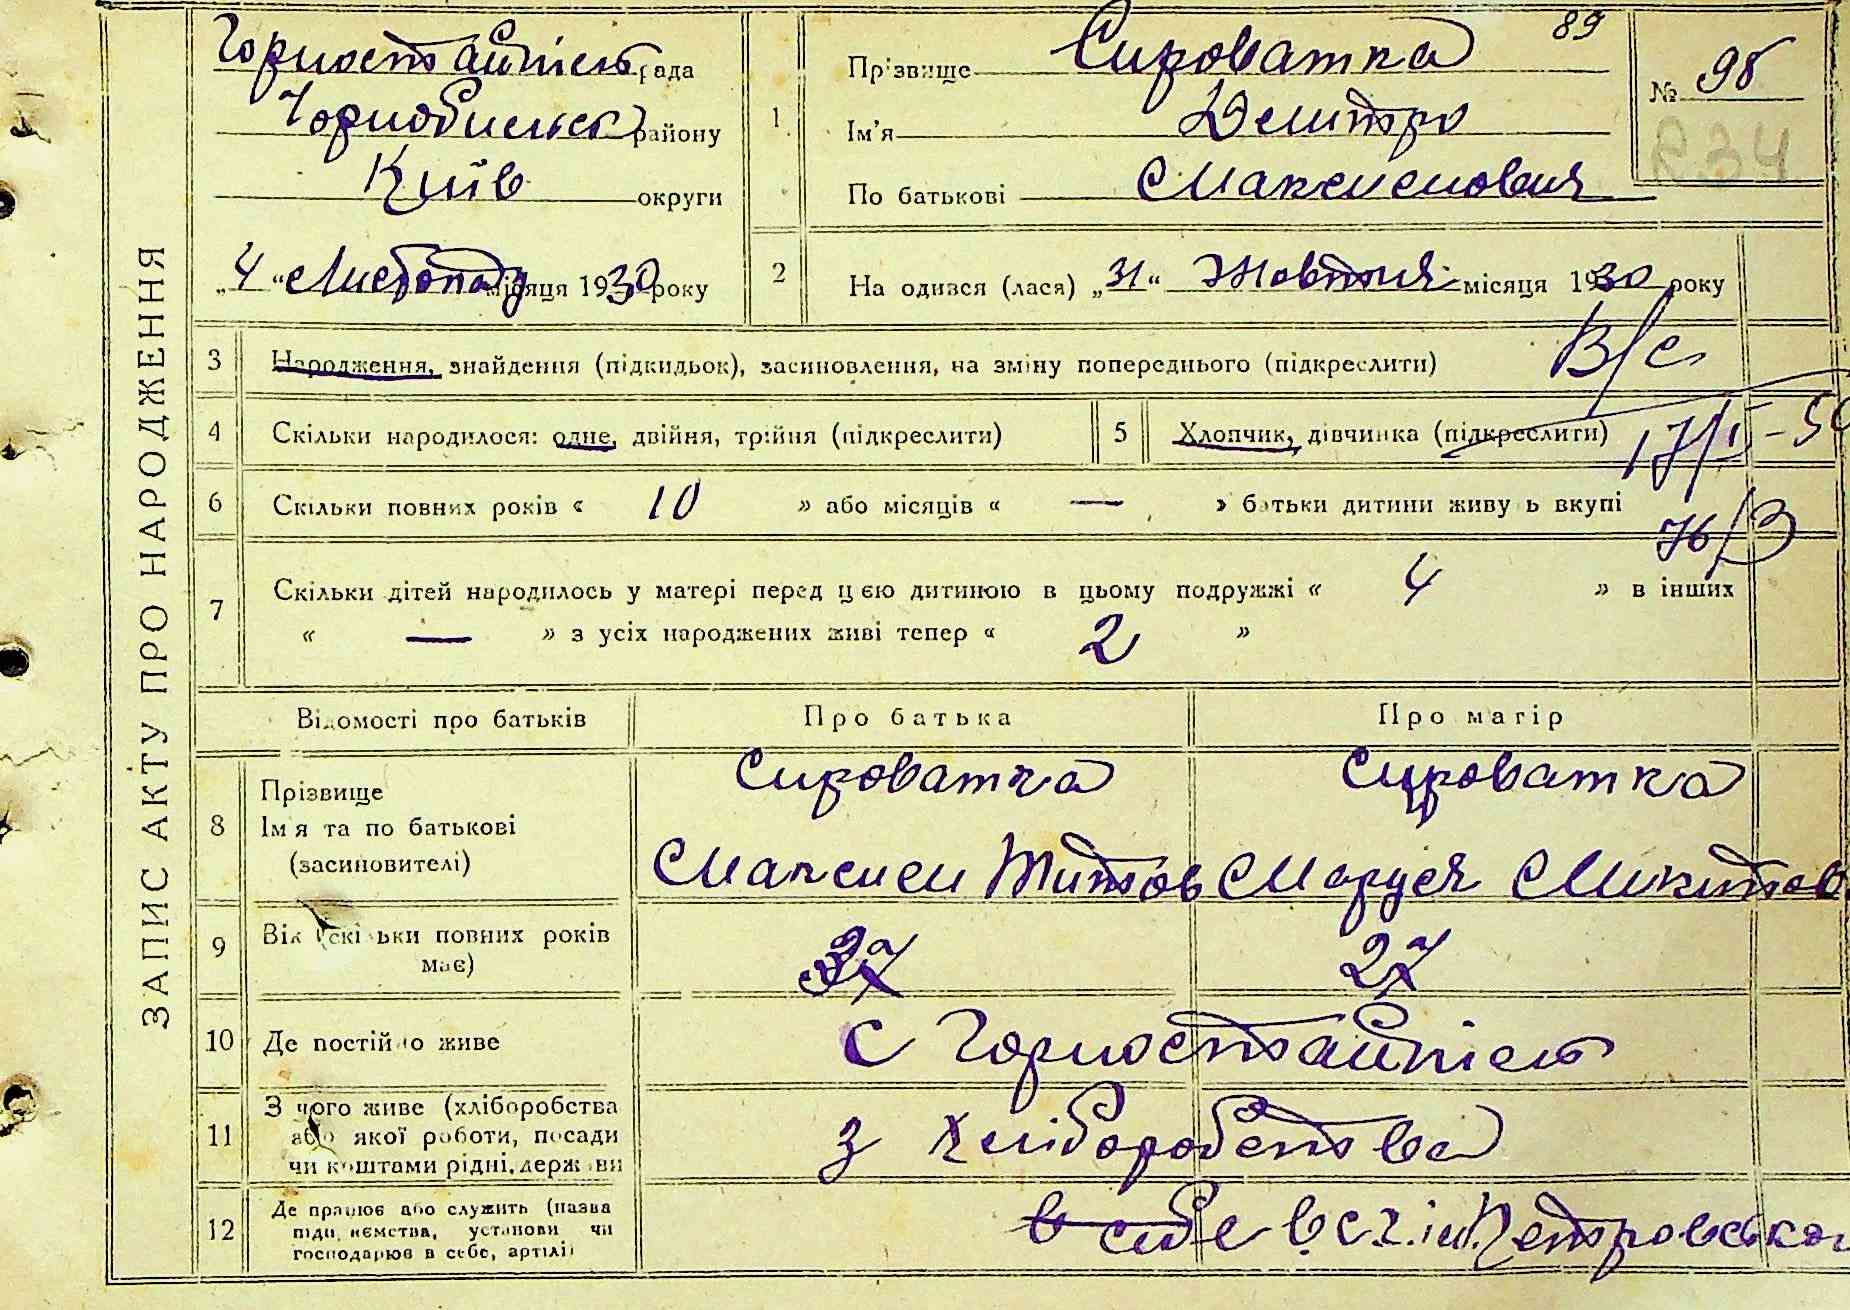 ЗАПИС АКТУ ПРО НАРОДЖЕННЯ
Горностайпіль рада
Чорнобильськ району
Київ округи
„4“ Листопаду місяця 1930 року
89
1 Прізвище Сироватка
Ім'я Дмитро
По батькові Максимовия
№ 98
234
2 На одився (лася) „31“ Жовтня місяця 1930 року
3 Народження, знайдення (підкидьок), засиновлення, на зміну попереднього (підкреслити)
В/с
4 Скільки народилося: одне, двійня, трійня (підкреслити)
5 Хлопчик, дівчинка (підкреслити)
6 Скільки повних років « 10 » або місяців « — » батьки дитини живу ь вкупі
76/3
7 Скільки дітей народилось у матері перед цією дитиною в цьому подружжі « 4 » в інших
« — » з усіх народжених живі тепер « 2 »
Відомості про батьків Про батька Про матір
8 Прізвище
Ім я та по батькові
(засиновителі)
Сироватка Сироватка
Максим Титов Маруся Микитов
9 Вік (скільки повних років
має)
37 27
10 Де постійно живе с Горностайпіль
11 З чого живе (хліборобства
або якої роботи, посади
чи коштами рідні, держави
з хліборобства
12 Де працює або служить (назва
підприємства, установи чи
господарює в себе, артілі)
в себе в с.г. ім. Петровського